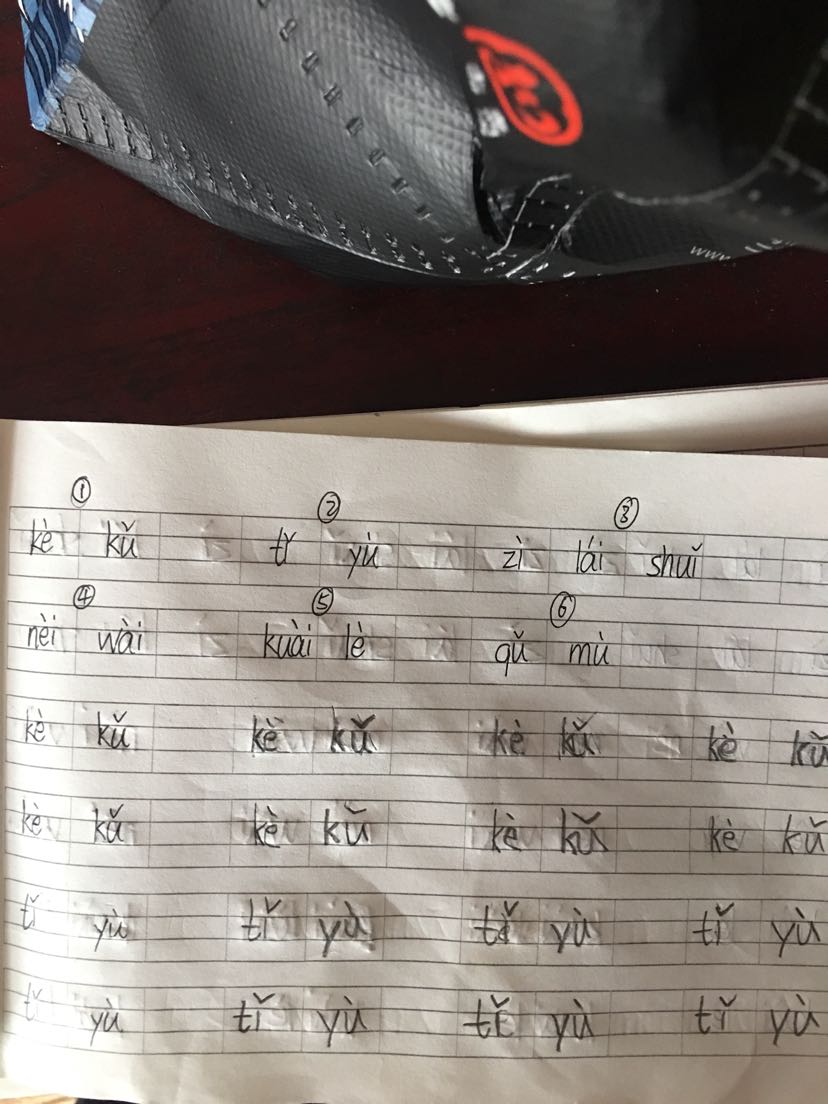 www.
① ② ③
kè kǔ tǐ yù zì lái shuǐ
④ ⑤ ⑥
nèi wài kuài lè qǔ mù
kè kǔ kè kǔ kè kǔ kè kǔ
kè kǔ kè kǔ kè kǔ kè kǔ
tǐ yù tǐ yù tǐ yù tǐ yù
tǐ yù tǐ yù tǐ yù tǐ yù